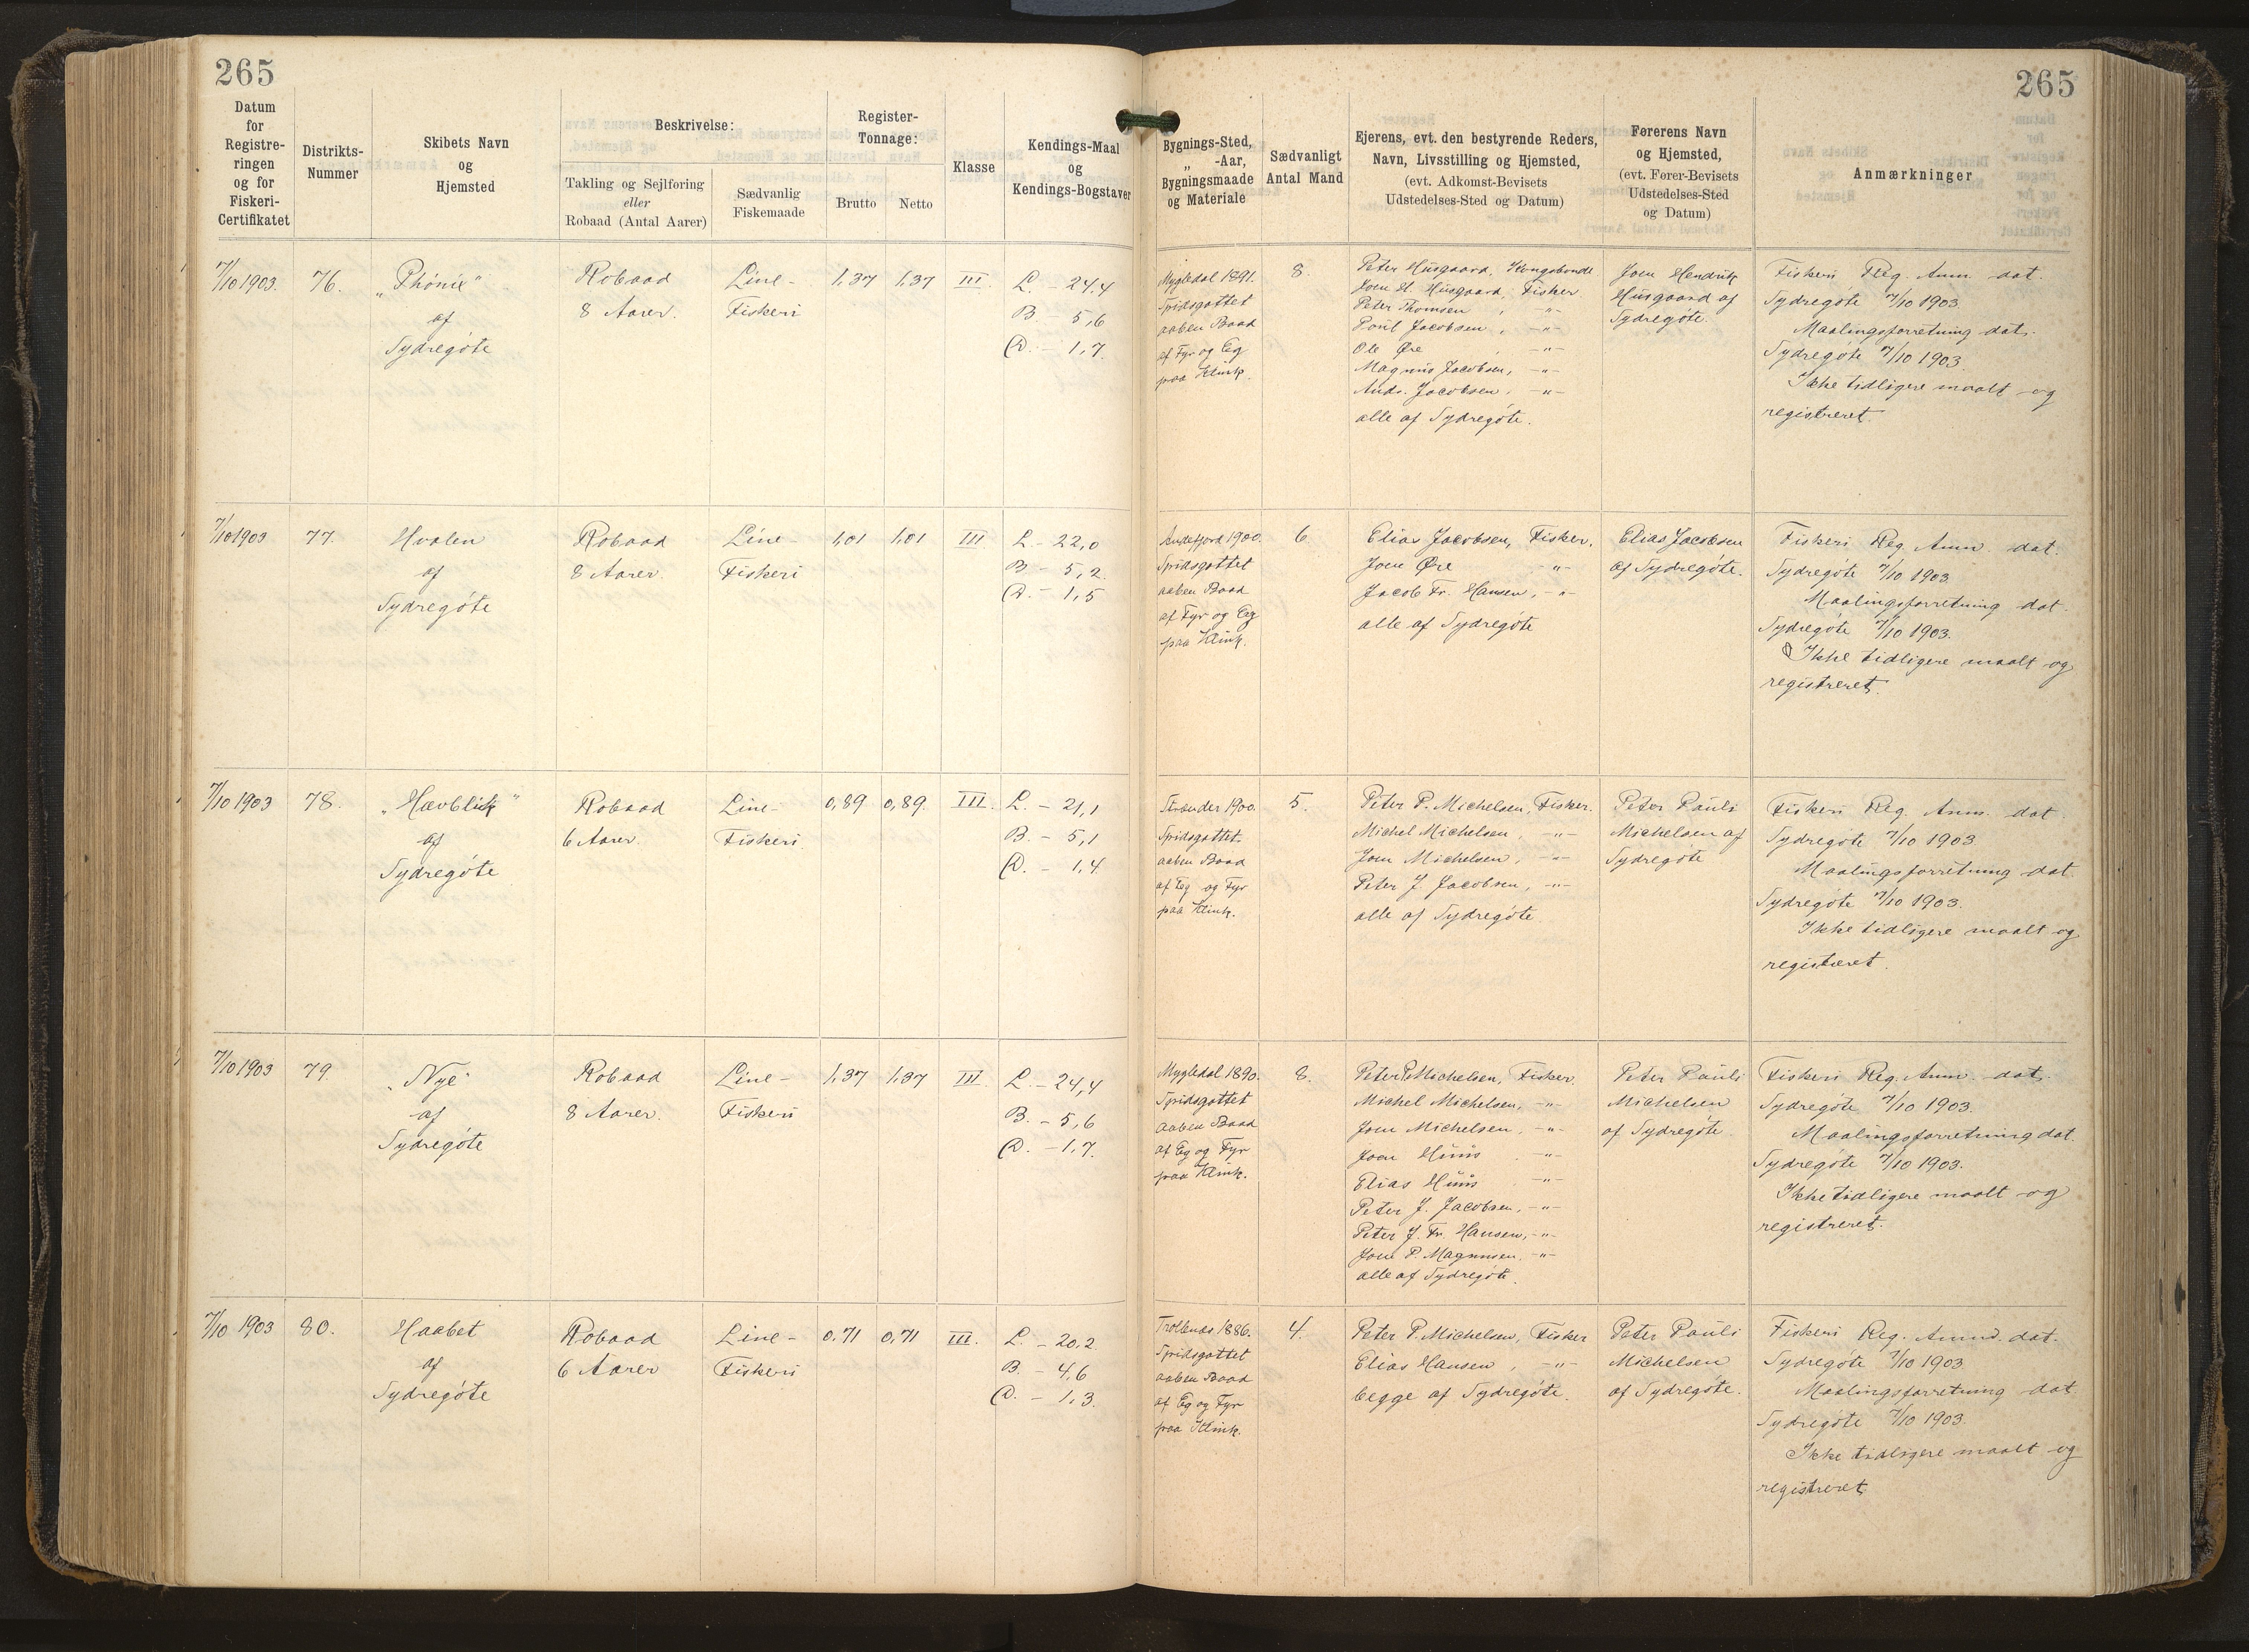 265
265
Datum
for
Registre-
ringen
og for
Fiskeri-
Certifikatet
Distrikts-
Nummer
Skibets Navn
og
Hjemsted
Beskrivelse:
Takling og Sejlføring
eller
Robaad (Antal Aarer)
Sædvanlig
Fiskemaade
Register-
Tonnage:
Brutto
Netto
Klasse
Kendings-Maal
og
Kendings-Bogstaver
Bygnings-Sted,
„ -Aar,
Bygningsmaade
og Materiale
Sædvanligt
Antal Mand
Ejerens, evt. den bestyrende Reders,
Navn, Livsstilling og Hjemsted,
(evt. Adkomst-Bevisets
Udstedelses-Sted og Datum)
Førerens Navn
og Hjemsted,
(evt. Fører-Bevisets
Udstedelses-Sted
og Datum)
Anmærkninger
7/10 1903.
76.
„Phönix"
af
Sydregöte
Robaad
8 Aarer.
Line-
Fiskeri
1,37
1,37
III.
L. - 24,4
B. - 5,6
D. - 1,7
Mygledal 1891.
Spidsgattet
aaben Baad
af Fyr og Eg
paa Klink.
8.
Peter Husgaard, Kongsbonde
Joen H. Husgaard, Fisker
Peter Thomsen , -"-
Poul Jacobsen , -"-
Ole Øre , -"-
Magnus Jacobsen, -"-
Andr. Jacobsen, -"-
alle af Sydregöte.
Joen Hendrik
Husgaard af
Sydregöte.
Fiskeri Reg. Anm. dat.
Sydregöte 7/10 1903
Maalingsforretning dat.
Sydregöte 7/10 1903.
Ikke tidligere maalt og
registreret.
7/10 1903
77.
Hvalen
af
Sydregöte
Robaad
8 Aarer.
Line-
Fiskeri
1,01
1,01
III
L. - 22,0
B - 5,2.
D. - 1,5
Andefjord 1900.
Spidsgattet
aaben Baad
af Fyr og Eg
paa Klink.
6
Elias Jacobsen, Fisker.
Joen Øre -"-
Jacob Fr. Hansen, -"-
alle af Sydregöte
Elias Jacobsen
af Sydregöte.
Fiskeri Reg. Anm. dat.
Sydregöte 7/10 1903
Maalingsforretning dat.
Sydregöte 7/10 1903.
Ikke tidligere maalt og
registreret.
7/10 1903
78.
„Havblik"
af
Sydregöte
Robaad
6 Aarer.
Line-
Fiskeri.
0,89
0,89
III.
L. - 21,1
B. - 5,1
D. - 1,4
1900.
Spidsgattet
aaben Baad
af Eg og Fyr
paa Klink.
5.
Peter P. Michelsen, Fisker.
Michel Michelsen, -"-
Joen Michelsen, -"-
Peter J. Jacobsen, -"-
alle af Sydregöte
Peter Pauli
Michelsen af
Sydregöte
Fiskeri Reg. Anm. dat
Sydregöte 7/10 1903
Maalingsforretning dat
Sydregöte 7/10 1903.
Ikke tidligere maalt og
registreret.
7/10 1903
79.
„Nye"
af
Sydregöte
Robaad
8 Aarer.
Line-
Fiskeri
1,37
1,37
III.
L. - 24,4
B. - 5,6
D. - 1,7.
Mygledal 1890.
Spidsgattet
aaben Baad
af Eg og Fyr
paa Klink.
8.
Peter P. Michelsen, Fisker.
Michel Michelsen, -"-
Joen Michelsen. -"-
Joen Huus -"-
Elias Huus -"-
Peter J. Jacobsen, -"-
Peter J. Fr. Hansen, -"-
Joen P. Magnusen. -"-
alle af Sydregöte.
Peter Pauli
Michelsen
af Sydregöte.
Fiskeri Reg. Anm. dat.
Sydregöte 7/10 1903.
Maalingsforretning dat.
Sydregöte 7/10 1903.
Ikke tidligere maalt og
registreret.
7/10 1903
80.
Haabet
af
Sydregöte
Robaad
6 Aarer
Line-
Fiskeri
0,71
0,71
III.
L. - 20,2
B. - 4,6
D. - 1,3.
Trollenæs 1886.
Spidsgattet
aaben Baad
af Eg og Fyr
paa Klink.
4.
Peter P. Michelsen, Fisker
Elias Hansen , -"-
begge af Sydregöte.
Peter Pauli
Michelsen
af Sydregöte.
Fiskeri Reg. Anm. dat.
Sydregöte 7/10 1903
Maalingsforretning dat.
Sydregöte 7/10 1903.
Ikke tidligere maalt og
registreret